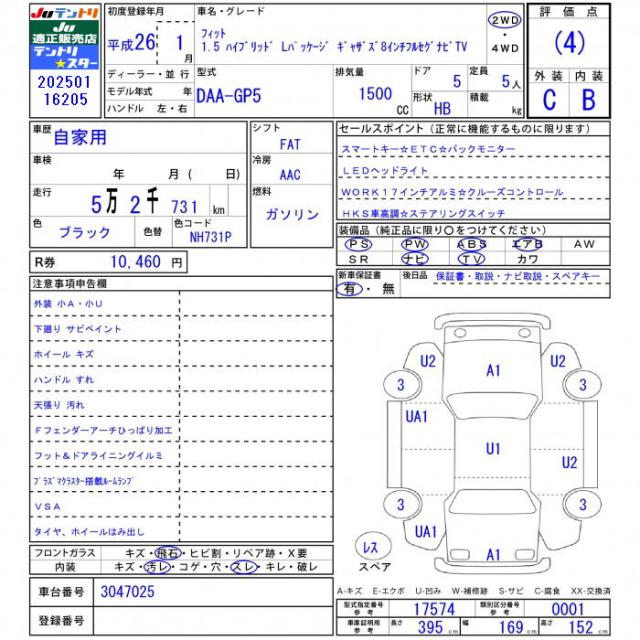 JUテントリ
JU
適正販売店
テントリ
★スター
202501
16205
初度登録年月
平成26年 1月
車名・グレード
フィット
1.5 ハイブリッド Lパッケージ ギャザズ8インチフルセグナビTV
2WD
・
4WD
評価点
(4)
外装 内装
C B
ディーラー・並行
モデル年式 年
ハンドル 左・右
型式
DAA-GP5
排気量
1500 CC
ドア 5
形状 HB
定員 5人
積載 kg
車歴 自家用
車検 年 月( 日)
走行 5万2千731km
色 ブラック 色替 色コード NH731P
シフト
FAT
冷房
AAC
燃料
ガソリン
セールスポイント(正常に機能するものに限ります)
スマートキー☆ETC☆バックモニター
LEDヘッドライト
WORK17インチアルミ☆クルーズコントロール
HKS車高調☆ステアリングスイッチ
装備品(純正品に限り〇をつけてください)
PS PW ABS エアB AW
SR ナビ TV カワ
R券 10,460円
新車保証書
有・無
後日品 保証書・取説・ナビ取説・スペアキー
注意事項申告欄
外装 小A・小U
下廻り サビペイント
ホイール キズ
ハンドル すれ
天張り 汚れ
Fフェンダーアーチひっぱり加工
フット&ドアライニングイルミ
プラズマクラスター搭載ルームランプ
VSA
タイヤ、ホイールはみ出し
U2 A1 U2
3 3
UA1
U1
U2
3 3
UA1
A1
レス
スペア
フロントガラス キズ・飛石・ヒビ割・リペア跡・X要
内装 キズ・汚レ・コゲ・穴・スレ・キレ・破レ
A-キズ E-エクボ U-凹み W-補修跡 S-サビ C-腐食 XX-交換済
車台番号 3047025
登録番号
型式指定番号 参考 17574 類別区分番号 参考 0001
車庫証明用 参考 長さ 395cm 幅 169cm 高さ 152cm